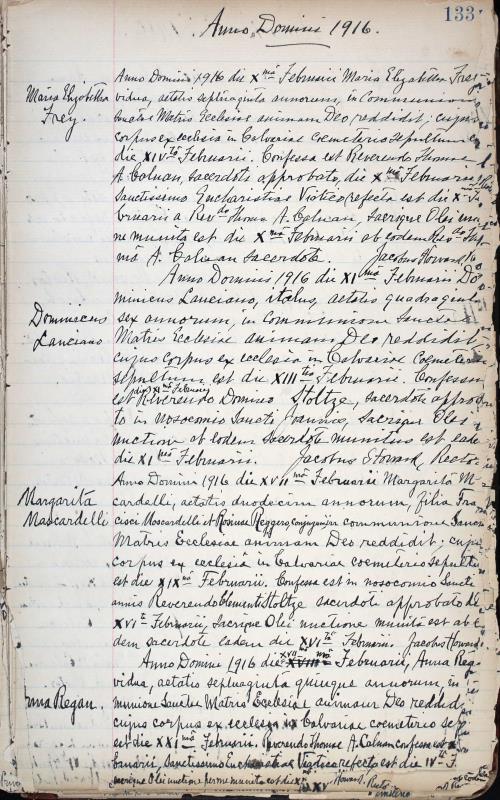 133
Anno Domini 1916.
Maria Elizabetha
Frey.
Anno Domini 1916 die Xmâ Februarii Maria Elizabetha Frey
vidua, aetatis septuaginta annorum, in Communione
Sanctae Matris Ecclesiae animam Deo reddidit; cujus
corpus ex ecclesia in Calvariae Coemeterio sepultum
die XIVto Februarii. Confessa est Reverendo Thomae
A. Colman, sacerdote approbato, die Xmâ Februarii
Sanctissimo Eucharistiae Viatico refecta est die Xmâ
bruarii a Revdo Thoma A. Colman, sacrique Olei
ne munita est die Xmâ Februarii ab eodem Revdo
mâ A. Colman sacerdote. Jacobus Howard
Anno Domini 1916 die XImâ Februarii Do
Dominicus
Lanciano
minicus Lanciano, italus, aetatis quadraginta
sex annorum, in Communione Sanctae
Matris Ecclesiae animam Deo reddidit
cujus corpus ex ecclesia in Calvariae Coemeterio
sepultum est die XIIIto Februarii. Confessus
die Februarii
est Reverendo Domino Stoltze, sacerdote approba
to in Nosocomio Sancti Joannis, sacrique Olei
unctione ab eodem sacerdote munitus est eadem
die XImâ Februarii. Jacobus Howard, Rector
Margarita
Mascardelli
Anno Domini 1916 die XVIImâ Februarii Margarita M
cardelli, aetatis duodecim annorum, filia Fra
cisci Mascardelli et Rosinae Reggero, conjugum, in communione Sanctae
Matris Ecclesiae animam Deo reddidit; cujus
corpus ex ecclesia in Calvariae coemeterio sepultum
est die XIXmâ Februarii. Confessa est in nosocomio Sancti
annis Reverendo Clementi Stoltze sacerdote approbato die
XVIto Februarii, sacrique Olei unctione munita est ab eo
dem sacerdote eadem die XVIto Februarii. Jacobus Howard
Anno Domini 1916 die XVII Februarii, Anna Reg
Anna Regan.
vidua, aetatis septuaginta quinque annorum, in
munione Sanctae Matris Ecclesiae animam Deo reddidit
cujus corpus ex ecclesia in Calvariae coemeterio sep
est die XXImâ Februarii. Reverendo Thomae A. Colman confessa est
banuarii, Sanctissimo Eucharistiae Viatico refecta est die
sacrique Olei unctione munita est die
Howard, Rector